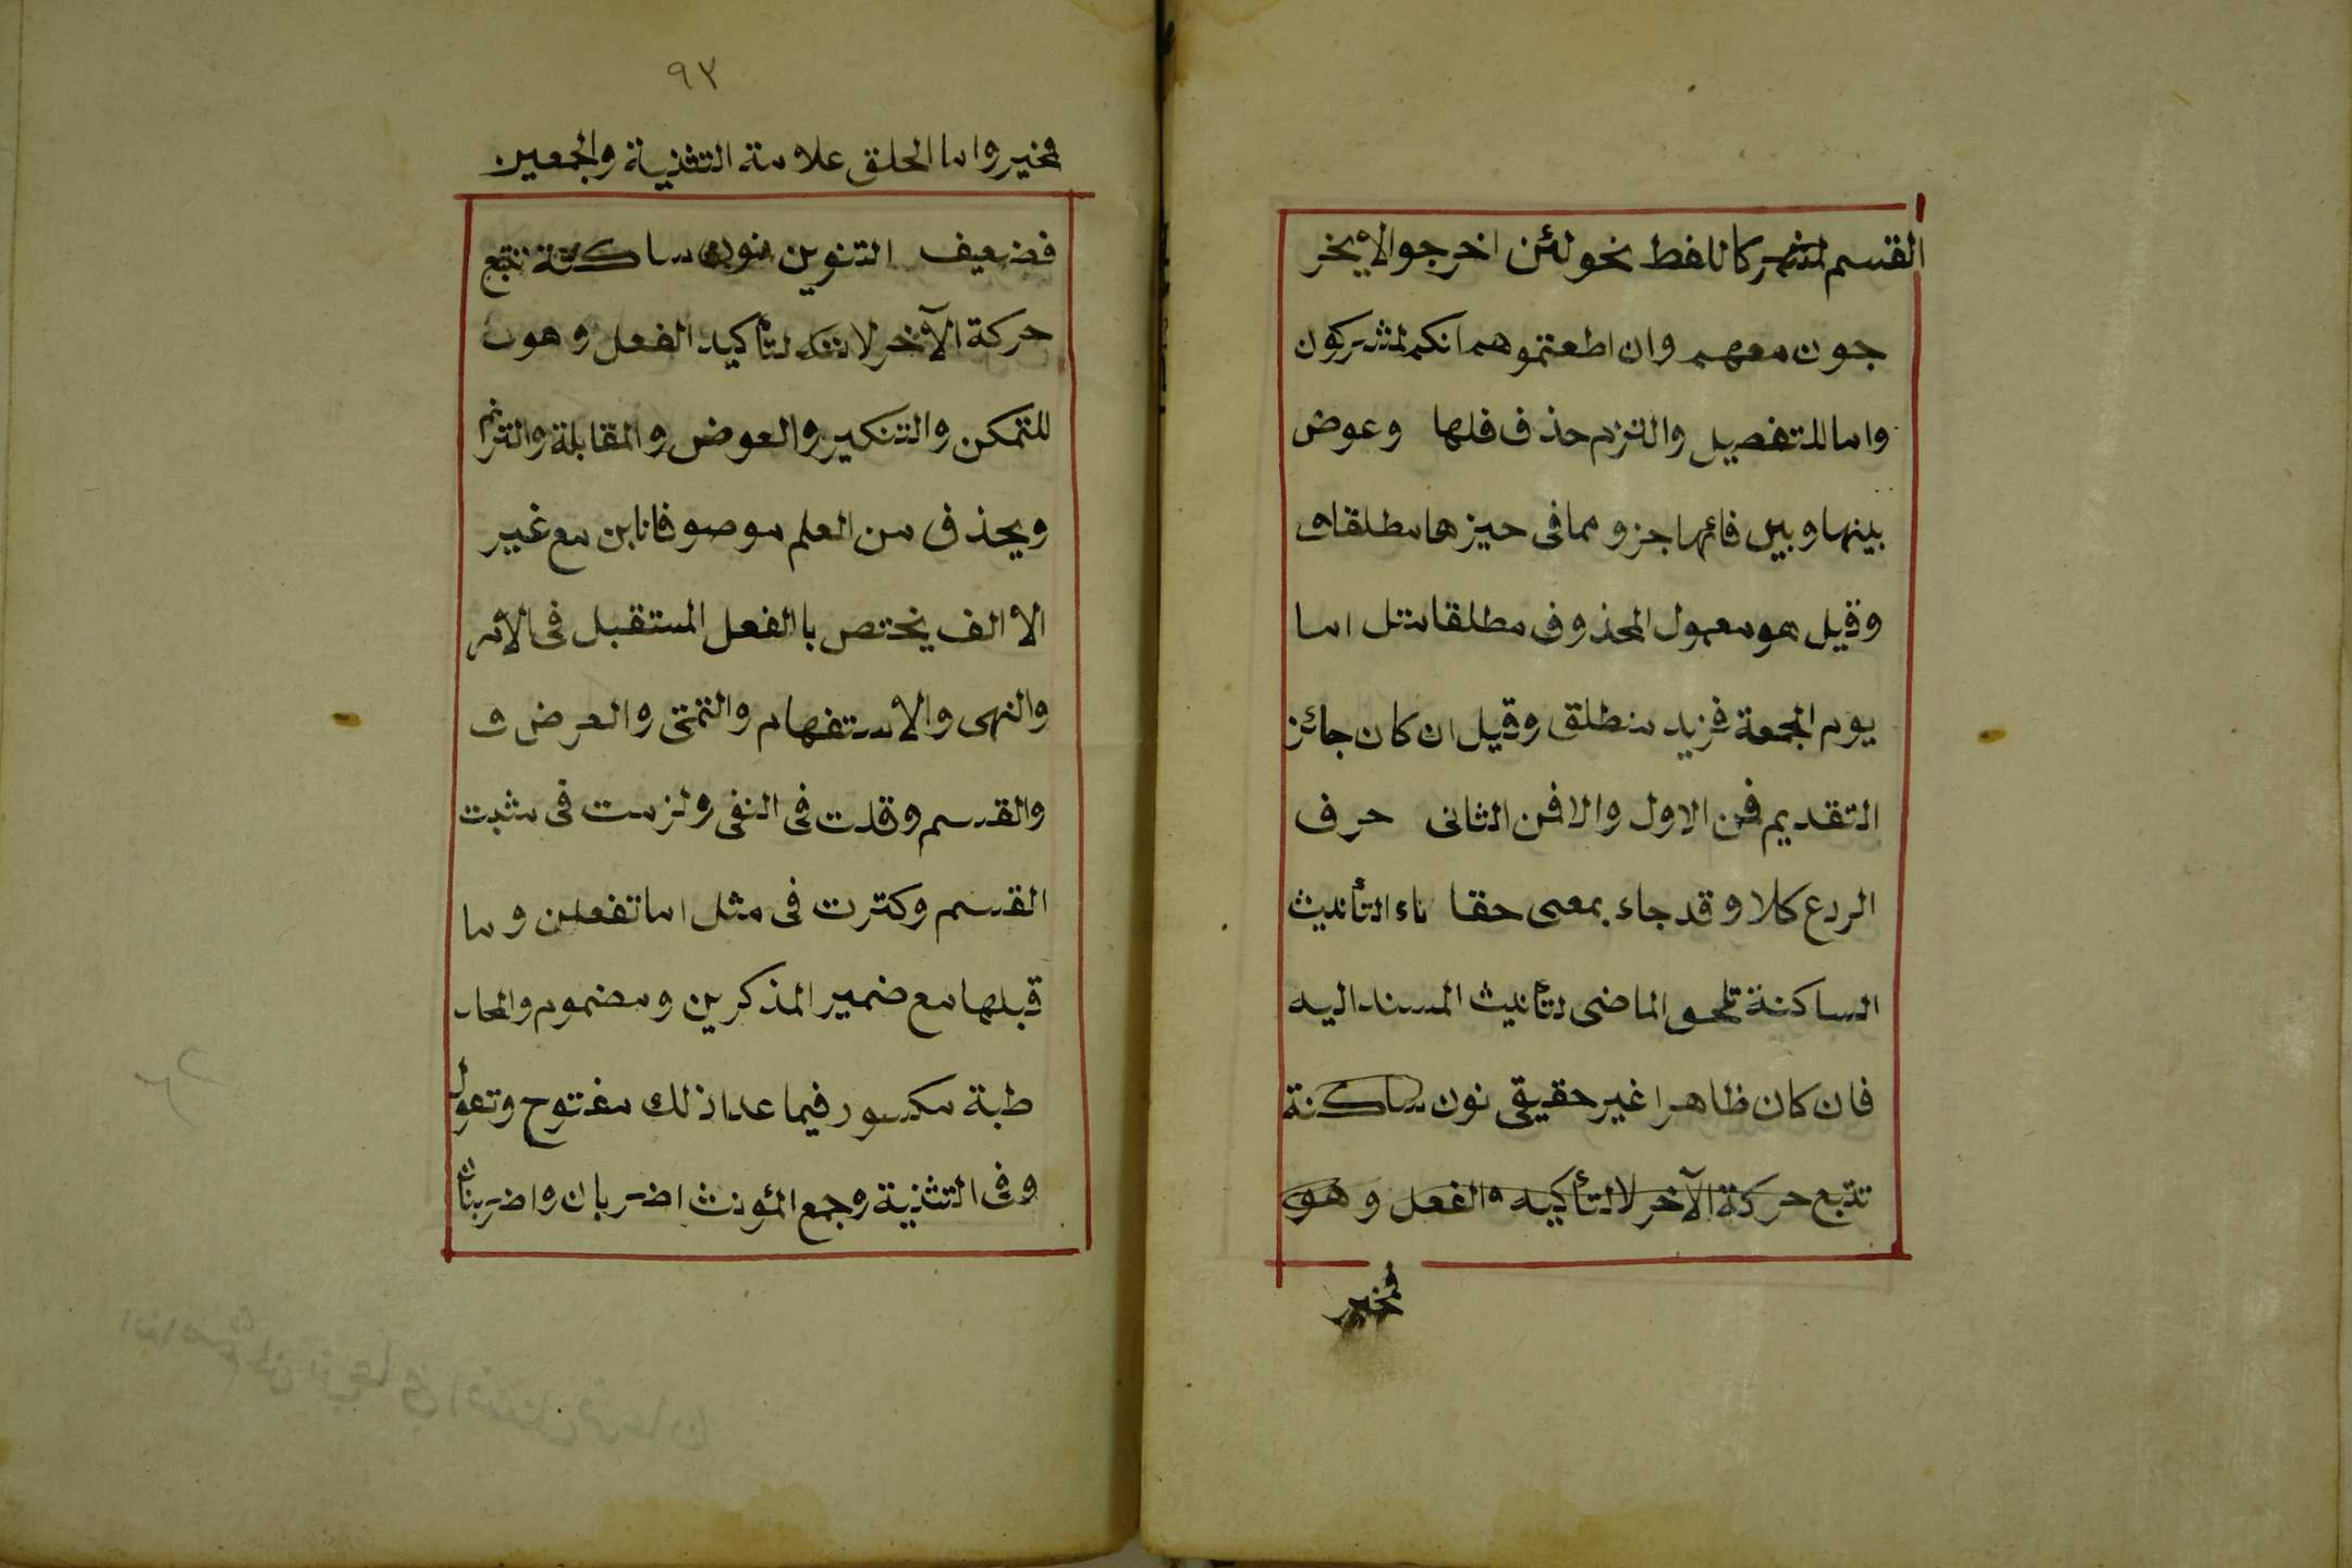 القسم لتفهيركاللفظ نحو لئن اخرجوا لا يخر
جون معهم وان اطعتموهم انكم لمشركون
واما للتفصيل والتزم حذف فلها وعوض
بينها وبين فائها جزو مما فى حيزها مطلقا و
وقيل هو معمول المحذوف مطلقا مثل اما
يوم الجمعة فزيد منطلق وقيل ان كان جائز
التقديم فمن الاول والا فمن الثانى حرف
الردع كلا وقد جاء بمعنى حقا تاء التأنيث
الساكنة تلحق الماضى لتأنيث المسند اليه
فان كان ظاهرا غير حقيقى نون ساكنة
تتبع حركة الآخر لا لتأكيد الفعل وهو
فمخير
٩٣
فمخير واما الحلق علامة التثنية والجمعين
فضعيف التنوين نون ساكنة تتبع
حركة الآخر لا لتأكيد الفعل وهو
للتمكن والتنكير والعوض والمقابلة والترنم
ويحذف من العلم موصوفا بابن مع غير
الا الف يختص باالفعل المستقبل فى الامر
والنهى والاستفهام والتمنى والعرض و
والقسم وقلت فى النفى ولزمت فى مثبت
القسم وكثرت فى مثل اما تفعلن وما
قبلها مع ضمير المذكرين ومضموم والمخا
طبة مكسور فيما عدا ذلك مفتوح وتقول
وفى التثنية وجمع المؤنث اضربان واضربنان